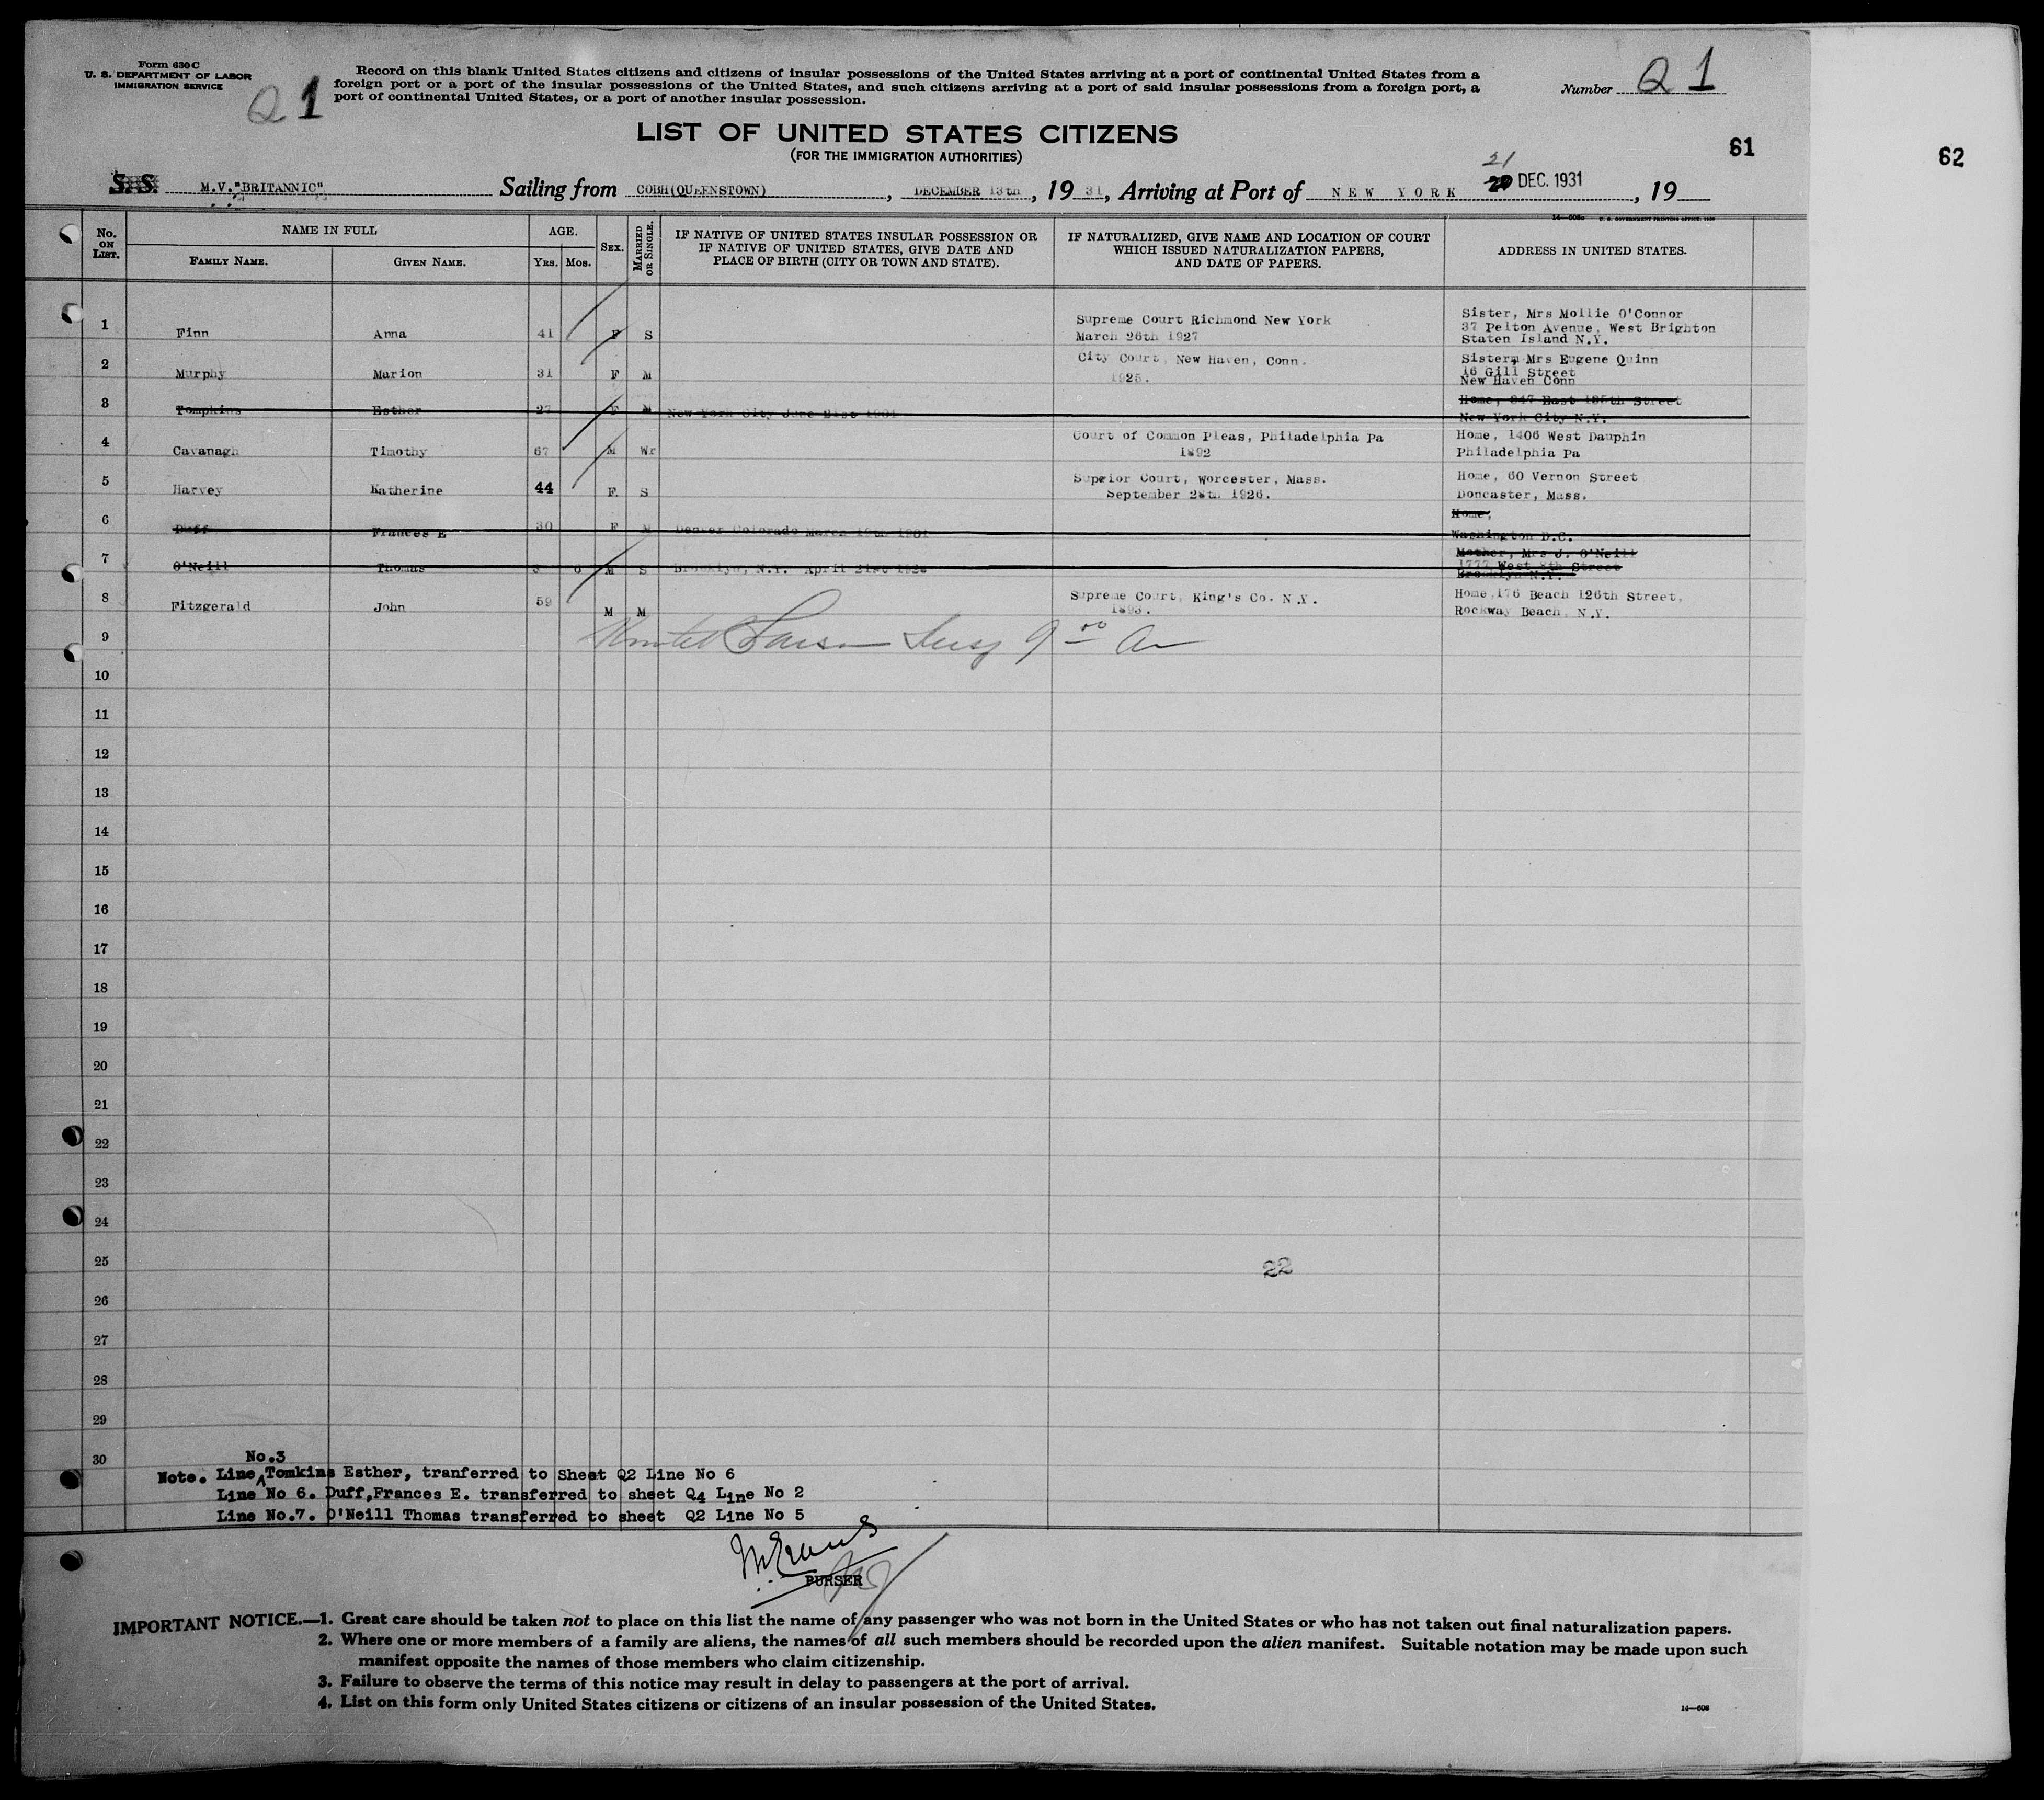 Form 630 C
U. S. DEPARTMENT OF LABOR
IMMIGRATION SERVICE
Q 1
Record on this blank United States citizens and citizens of insular possessions of the United States arriving at a port of continental United States from a
foreign port or a port of the insular possessions of the United States, and such citizens arriving at a port of said insular possessions from a foreign port, a
port of continental United States, or a port of another insular possession.
Number Q 1
LIST OF UNITED STATES CITIZENS
(FOR THE IMMIGRATION AUTHORITIES)
61
62
S. S. M.V."BRITANNIC" Sailing from COBH(QUEENSTOWN), DECEMBER 13th, 19 31, Arriving at Port of NEW YORK 21 20 DEC. 1931, 19
No. ON LIST. NAME IN FULL FAMILY NAME. GIVEN NAME. AGE. YRS. MOS. SEX. MARRIED OR SINGLE.
IF NATIVE OF UNITED STATES INSULAR POSSESSION OR
IF NATIVE OF UNITED STATES, GIVE DATE AND
PLACE OF BIRTH (CITY OR TOWN AND STATE).
IF NATURALIZED, GIVE NAME AND LOCATION OF COURT
WHICH ISSUED NATURALIZATION PAPERS,
AND DATE OF PAPERS.
ADDRESS IN UNITED STATES.
1 Finn Anna 41 F S Supreme Court Richmond New York
March 26th 1927
Sister, Mrs Mollie O'Connor
37 Pelton Avenue, West Brighton
Staten Island N.Y.
2 Murphy Marion 31 F M City Court, New Haven, Conn.
1925.
Sister, Mrs Eugene Quinn
16 Gill Street
New Haven Conn
3 Tompkins Esther 27 F M New York City June 21st
Home, 847 East Street
New York City N.Y.
4 Cavanagh Timothy 67 M Wr Court of Common Pleas, Philadelphia Pa
1892
Home, 1406 West Dauphin
Philadelphia Pa
5 Harvey Katherine 44 F. S Superior Court, Worcester, Mass.
September 1926.
Home, 60 Vernon Street
Doncaster, Mass.
6 Duff Frances E 30 F M Denver Colorado March
Home,
Washington D.C.
7 O'Neill Thomas 6 M S Brooklyn, N.Y. April 21st
Mother, Mrs J. O'Neill
1777 West 8th Street
Brooklyn N.Y.
8 Fitzgerald John 59 M M Supreme Court, King's Co. N.Y.
1893.
Home, 176 Beach 126th Street,
Rockway Beach, N.Y.
9
10
11
12
13
14
15
16
17
18
19
20
21
22
23
24
25
22
26
27
28
29
30
No.3
Note. Line Tomkins Esther, tranferred to Sheet Q2 Line No 6
Line No 6. Duff,Frances E. transferred to sheet Q4 Line No 2
Line No.7. O'Neill Thomas transferred to sheet Q2 Line No 5
PURSER
IMPORTANT NOTICE.—1. Great care should be taken not to place on this list the name of any passenger who was not born in the United States or who has not taken out final naturalization papers.
2. Where one or more members of a family are aliens, the names of all such members should be recorded upon the alien manifest. Suitable notation may be made upon such
manifest opposite the names of those members who claim citizenship.
3. Failure to observe the terms of this notice may result in delay to passengers at the port of arrival.
4. List on this form only United States citizens or citizens of an insular possession of the United States.
14—608